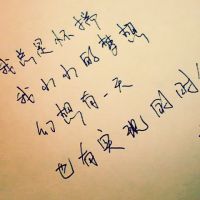 我总是怀揣
我小小的梦想
幻想有一天
也有实现的时